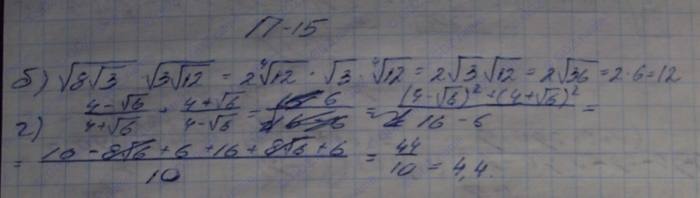 П-15
б) √8√3 √3√12 = 2 ⁴√12 · √3 · ⁴√12 = 2√3 √12 = 2√36 = 2·6=12
г) (4-√6)/(4+√6) + (4+√6)/(4-√6) = = ((4-√6)² + (4+√6)²)/(16-6) =
= (16 - 8√6 + 6 + 16 + 8√6 + 6)/10 = 44/10 = 4,4.